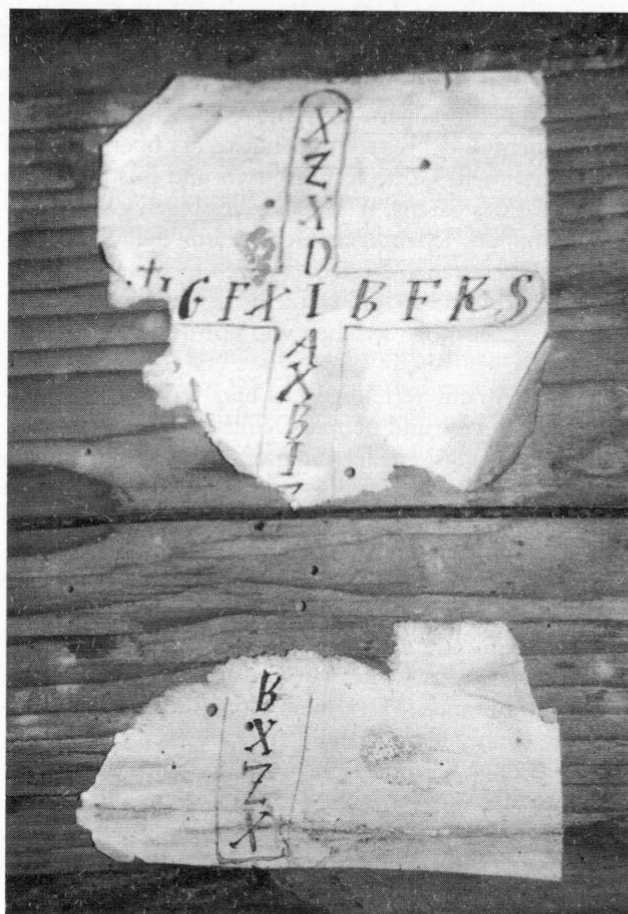 X
Z
X
D
+ G F X I B F K S
A
X
B
I
Z
B
X
Z
X